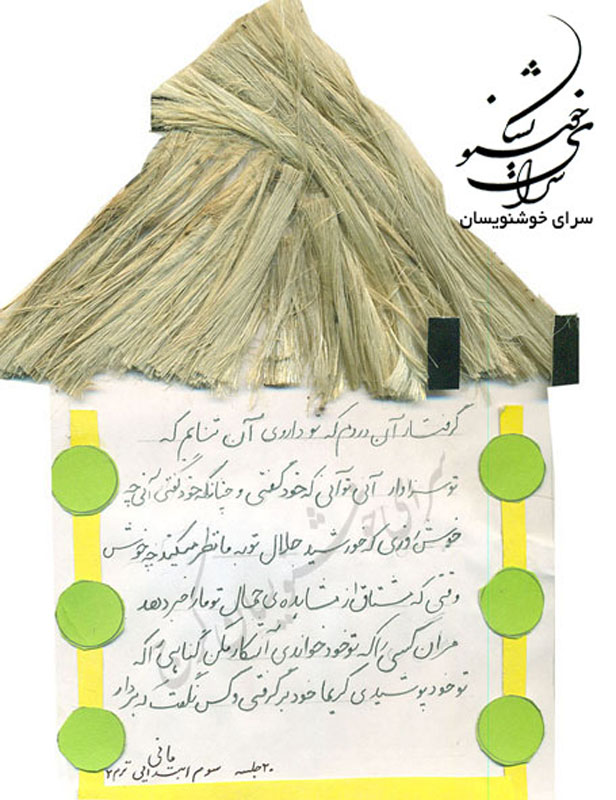 سرای خوشنویسان
سرای خوشنویسان
گرفتار آن دردم که تو داروی آن تنانم که
تو سزاوار آنی تو آنی که خود گفتی و چنانکه خود گفتی آنی چه
خوش روزی که خورشید جلال تو به ما نظر میکند چه خوش
وقتی که مشتاق از مشاهده ی جمال تو ما را خبر دهد
مران کسی را که تو خود خواندی آشکار مکن گناهی را که
تو خود پوشیدی کریما خود برگرفتی و کس نگفت که بردار
مانی
۲۰ جلسه سوم ابتدایی ترم ۲